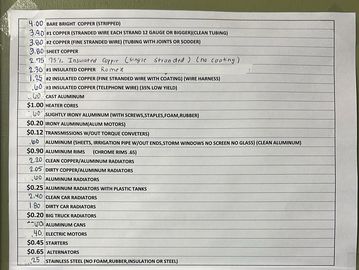 4.00 BARE BRIGHT COPPER (STRIPPED)
3.90 #1 COPPER (STRANDED WIRE EACH STRAND 12 GAUGE OR BIGGER)(CLEAN TUBING)
3.80 #2 COPPER (FINE STRANDED WIRE) (TUBING WITH JOINTS OR SODDER)
3.80 SHEET COPPER
2.75 75% Insulated Copper (single stranded) (no coating)
2.30 #1 INSULATED COPPER Romex
#2 INSULATED COPPER (FINE STRANDED WIRE WITH COATING) (WIRE HARNESS)
.60 #3 INSULATED COPPER (TELEPHONE WIRE) (35% LOW YIELD)
.60 CAST ALUMINUM
$1.00 HEATER CORES
.60 SLIGHTLY IRONY ALUMINUM (WITH SCREWS,STAPLES,FOAM,RUBBER)
$0.20 IRONY ALUMINUM(ALUM MOTORS)
$0.12 TRANSMISSIONS W/OUT TORQUE CONVETERS)
.60 ALUMINUM (SHEETS, IRRIGATION PIPE W/OUT ENDS,STORM WINDOWS NO SCREEN NO GLASS) (CLEAN ALUMINUM)
$0.90 ALUMINUM RIMS (CHROME RIMS .65)
2.20 CLEAN COPPER/ALUMINUM RADIATORS
2.05 DIRTY COPPER/ALUMINUM RADIATORS
.60 ALUMINUM RADIATORS
$0.25 ALUMINUM RADIATORS WITH PLASTIC TANKS
2.40 CLEAN CAR RADIATORS
1.80 DIRTY CAR RADIATORS
$0.20 BIG TRUCK RADIATORS
ALUMINUM CANS
.40 ELECTRIC MOTORS
$0.45 STARTERS
$0.65 ALTERNATORS
.25 STAINLESS STEEL (NO FOAM,RUBBER,INSULATION OR STEEL)